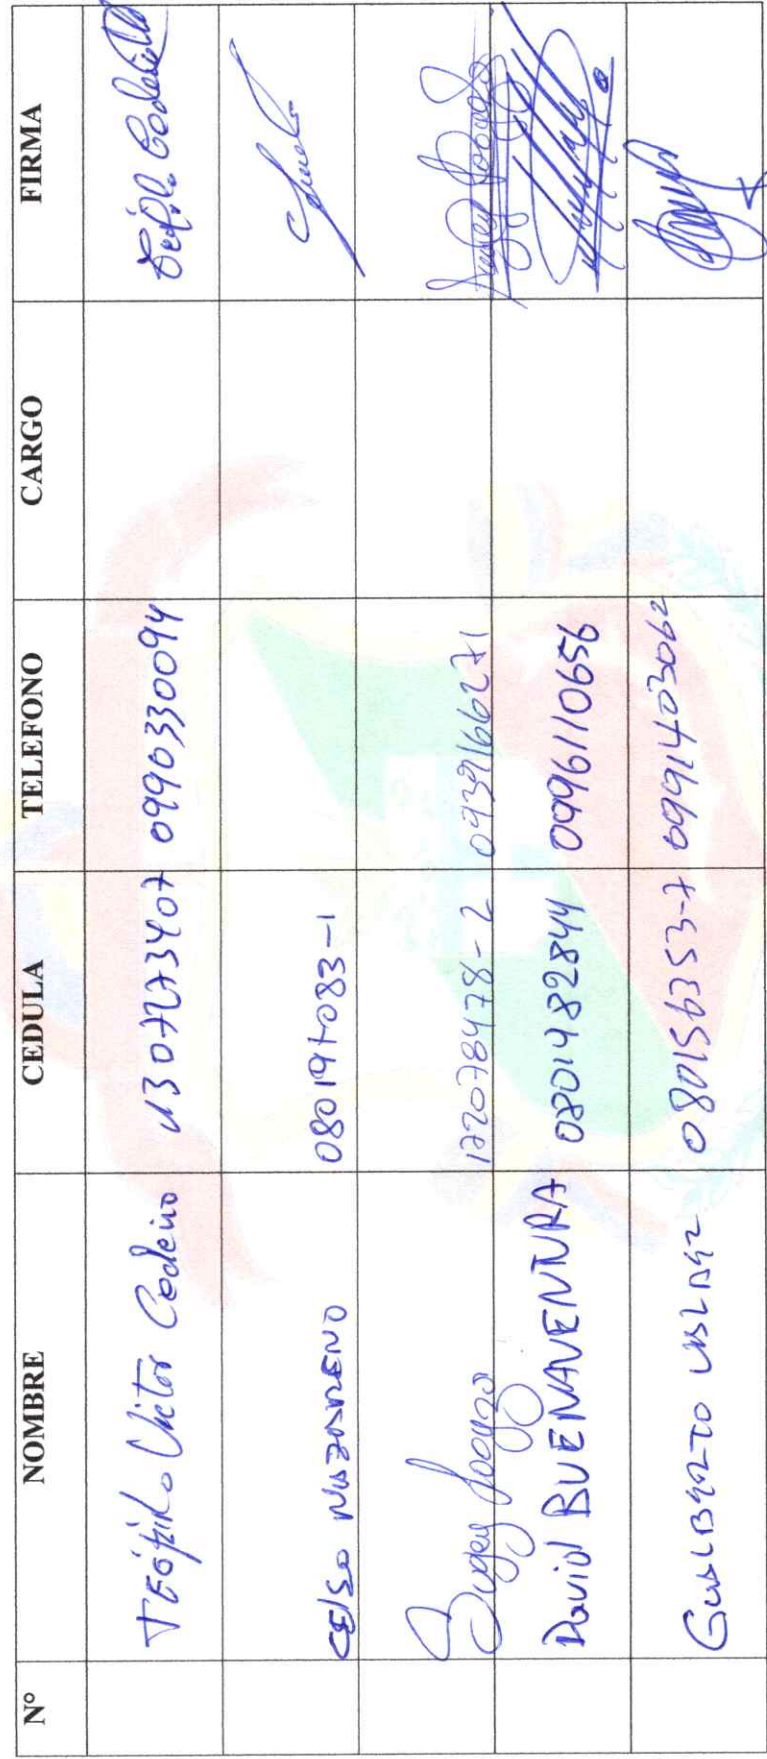 Nº NOMBRE CEDULA TELEFONO CARGO FIRMA
Teófilo Victor Cedeño 1307273407 0990330094 Teófilo Cedeño
Celso Nazareno 080197083-1
172078478-2 0939166271
David BUENAVENTURA 0801482844 0996110656
GUALBERTO 080156353-7 0991403062